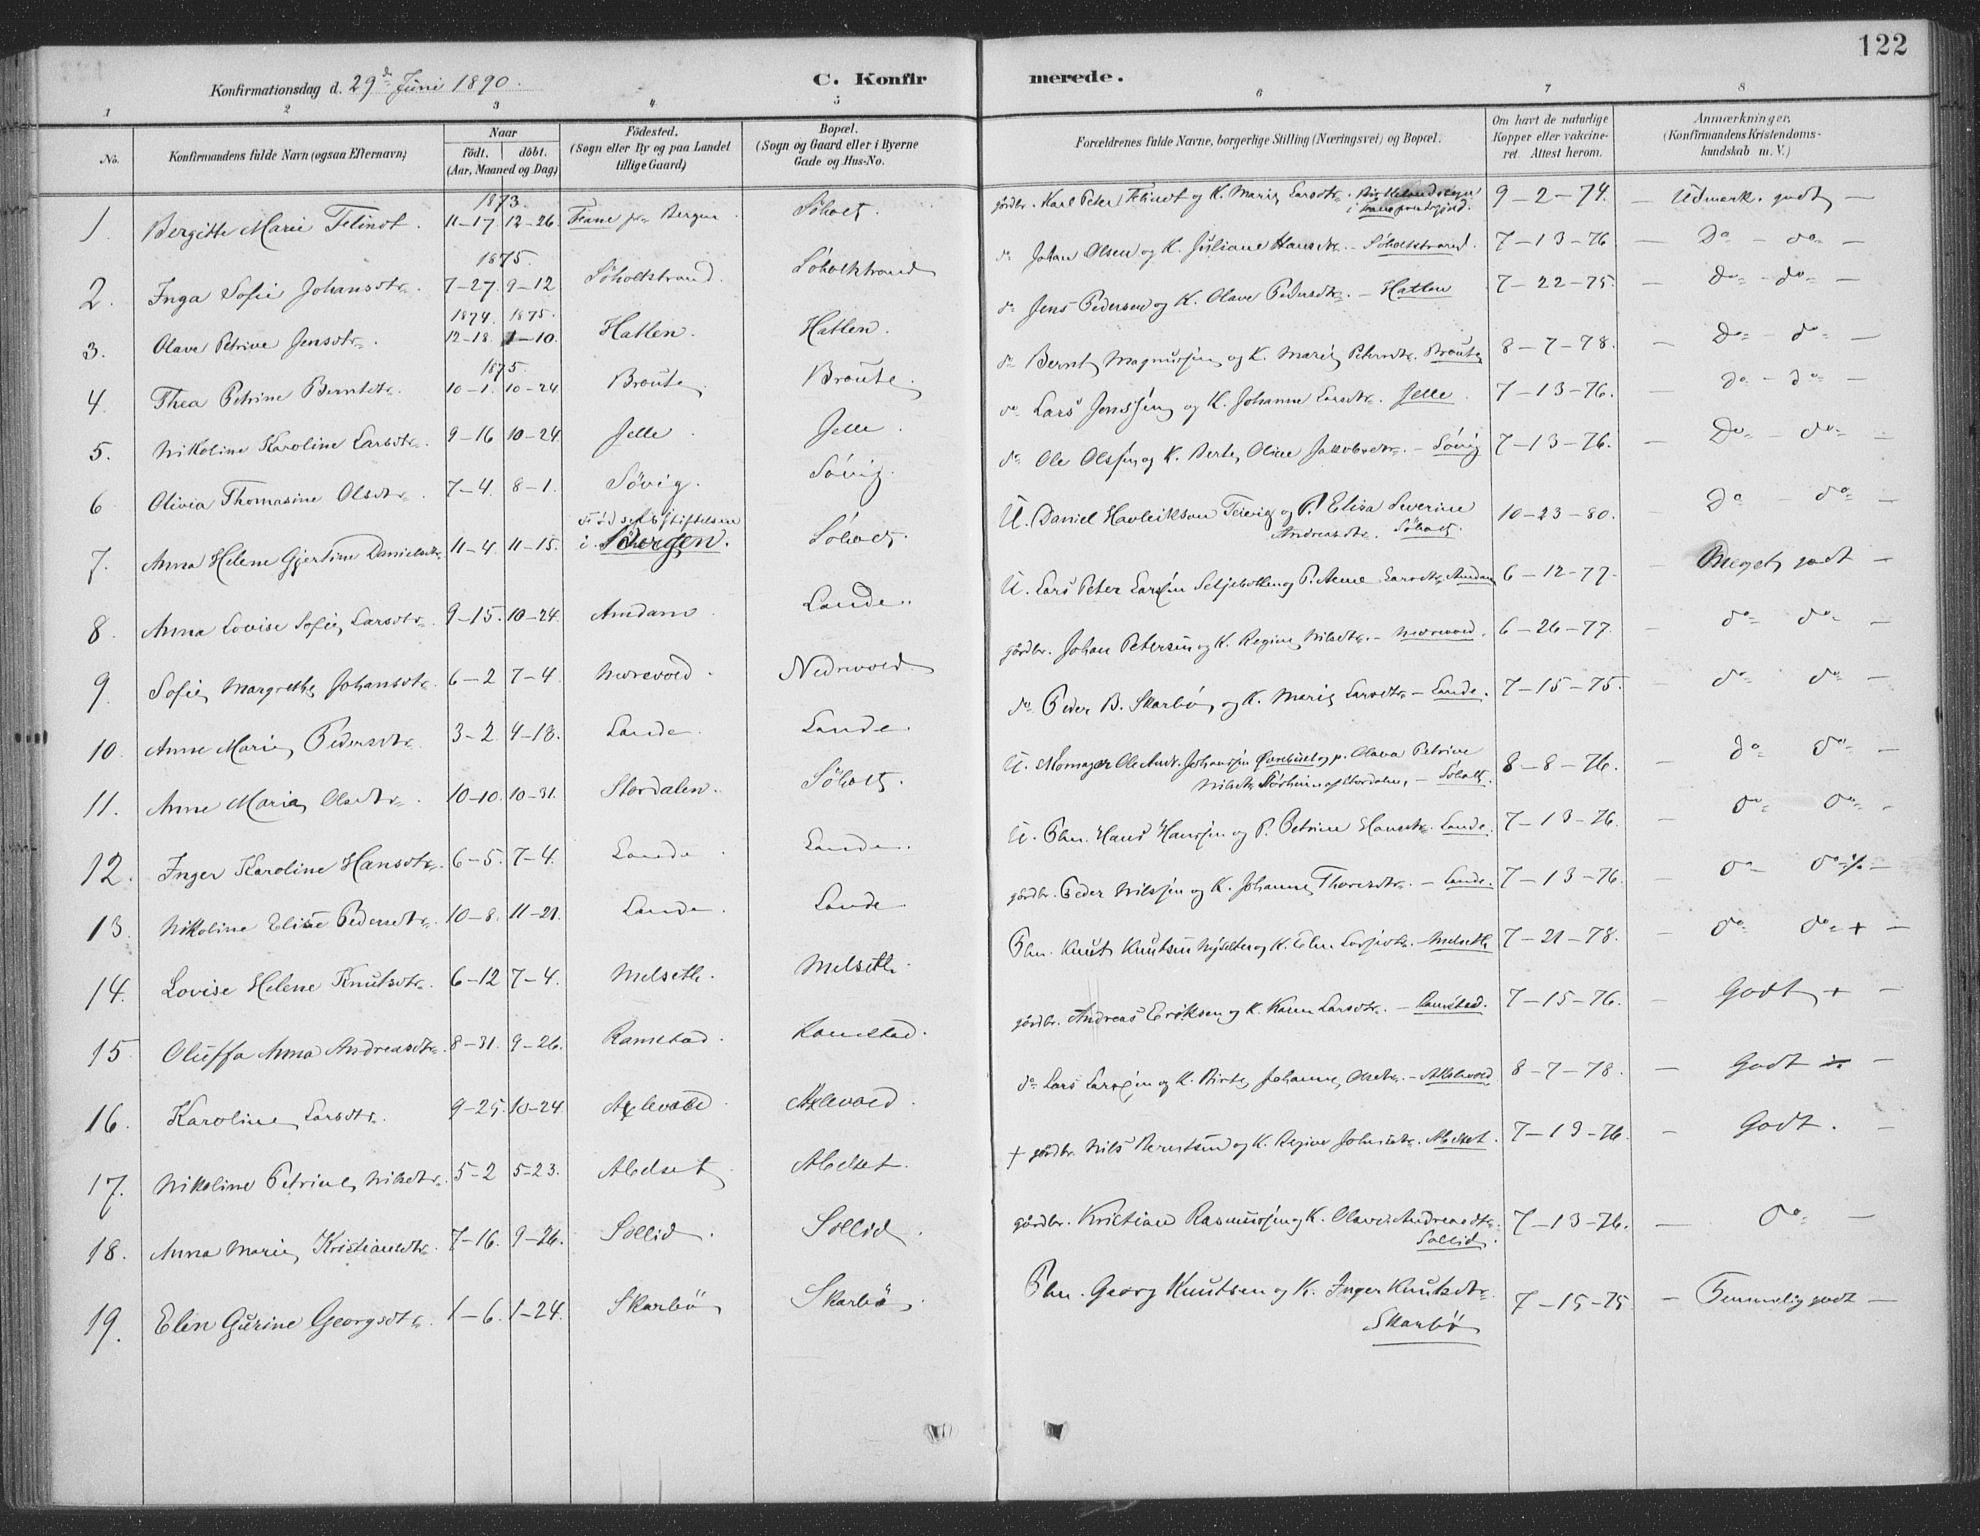 122
Konfirmationsdag d. 29de Juni 1890.
C. Konfirmerede.
1 2 3 4 5 6 7 8
No. Konfirmandens fulde Navn (ogsaa Efternavn) Naar Födt. döbt. (Aar, Maaned og Dag) Födested. (Sogn eller By og paa Landet tillige Gaard) Bopæl. (Sogn og Gaard eller i Byerne Gade og Hus-No. Forældrenes fulde Navne, borgerlige Stilling (Næringsvei) og Bopæl. Om havt de naturlige Kopper eller vakcineret. Attest herom. Anmærkninger. (Konfirmandens Kristendomskundskab m. V.)
1873.
1. Bergitte Marie Flindt. 11–17 12–26 Fane pr. Bergen. Söholt. gårdbr. Karl Peter Flindt og K. Marie Larsdtr. 9–2–74. – Udmærk. godt –
1875.
2. Inga Sofie Johansdtr. 7–27. 9–12 Söholtstrand. Söholtstrand do Johan Olsen og K. Juliane Hansdtr. – Söholtstrand. 7–13–76 – Do – do –
1874. 1875.
3. Olave Petrine Jensdtr. 12–18 1–10. Hatlen. Hatlen. do Jens Pedersen og K. Olave Pedersdtr. – Hatlen 7–22–75. – do – do –
1875.
4. Thea Petrine Berntdtr. 10–1. 10–24 Braute. Braute. do Bernt Magnussen og K. Marie Petersdtr. Braute 8–7–78. – Do – do –
5. Nikoline Karoline Larsdtr. 9–16 10–24. Jelle. Jelle. do Lars Jenssen og K. Johanne Larsdtr. Jelle. 7–13–76. – do – do –
6 Olivia Thomasine Olsdtr. 7–4. 8–1. Sövig. Sövig. do Ole Olsen og K. Berte Oline Jakobsdtr. – Sövig 7–13–76. – Do – do –
7. Anna Helene Gjertine Danielsdtr. 11–4. 11–15. Födselsstiftelsen i Bergen. Söholt. U. Daniel Havleikson Teivig og P. Elisa Severine Andreasdtr. Söholt. 10–23–80. – do – do –
8. Anna Lovise Sofie Larsdtr. 9–15. 10–24. Amdam Lande. U. Lars Peter Larsen Seljebotten og P. Anne Larsdtr. Amdam 6–12–77. – Meget godt –
9. Sofie Margrethe Johansdtr. 6–2 7–4. Nedrevold. Nedrevold. gårdbr. Johan Petersen og K. Regine Nilsdtr. – Nedrevold. 6–26–77. – do do –
10. Anne Marie Pedersdtr. 3–2. 4–18. Lande. Lande. do Peder B. Skarbö og K. Marie Larsdtr. – Lande. 7–15–75. – do do –
11. Anne Marie Olsdtr. 10–10. 10–31. Stordalen. Söholt. U. Skomager Ole Andr. Johansen Övrebust og p. Olava Petrine Nilsdtr. af Stordalen, – Söholt. 8–8–76. – do do –
12. Inger Karoline Hansdtr. 6–5. 7–4. Lande. Lande. U. Phm. Hans Hansen og P. Petrine Hansdtr. Lande. 7–13–76. – do do –
13. Nikoline Elise Pedersdtr. 10–8. 11–21. Lande. Lande gårdbr. Peder Nilssen og K. Johanne Thoresdtr. – Lande. 7–13–76. – do do –
14. Lovise Helene Knutsdtr. 6–12 7–4. Melseth. Melseth. Phm. Knut Knutsen og K. Elen – Melseth 7–21–78. – do do + –
15 Oluffa Anna Andreasdtr. 8–31. 9–26. Ramstad. Ramstad. gårdbr. Andreas Eriksen og K. Karen Larsdtr. – Ramstad. 7–15–76. – Godt + –
16. Karoline Larsdtr. 9–25. 10–24. Axlevold. Axlevold. do Lars Larsen og K. Birte Johanne Olsdtr. – Akslevold 8–7–78. – Godt –
17. Nikoline Petrine Nilsdtr. 5–2 5–23. Abelset Abelset. + gårdbr. Nils Berntsen og K. Regine Johnsdtr. Abelset. 7–13–76. – Godt. –
18. Anna Marie Kristiansdtr. 7–16. 9–26. Sollid. Sollid. gårdbr. Kristian Rasmussen og K. Olave Andreasdtr. Sollid. 7–13–76. – do –
19. Elen Gurine Georgsdtr. 1–6. 1–24. Skarbö Skarbö Phm. Georg Knutsen og K. Inger Knutsdtr. Skarbö 7–15–75. – Temmelig godt –